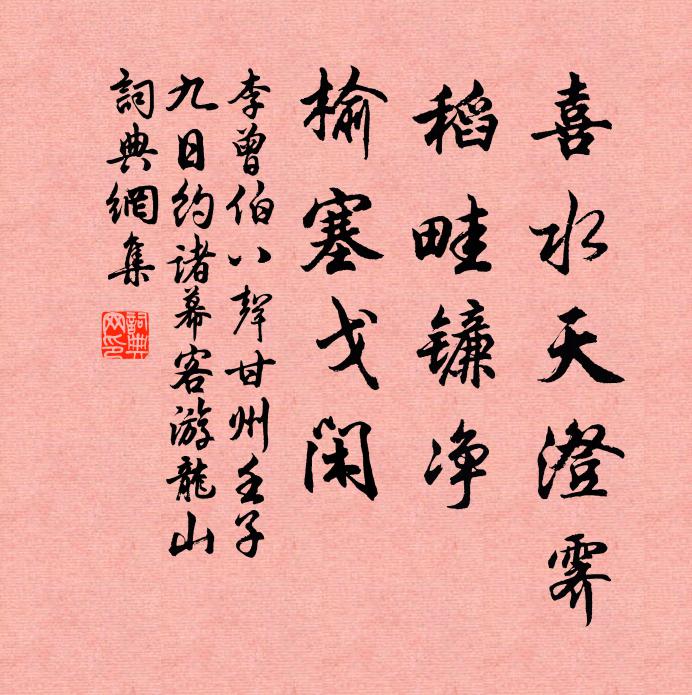 喜水天澄霽
稻畦镰净
榆塞戈闲
李曾伯八聲甘州壬子
九日约諸幕客游龍山
詞典網集
詞典网印